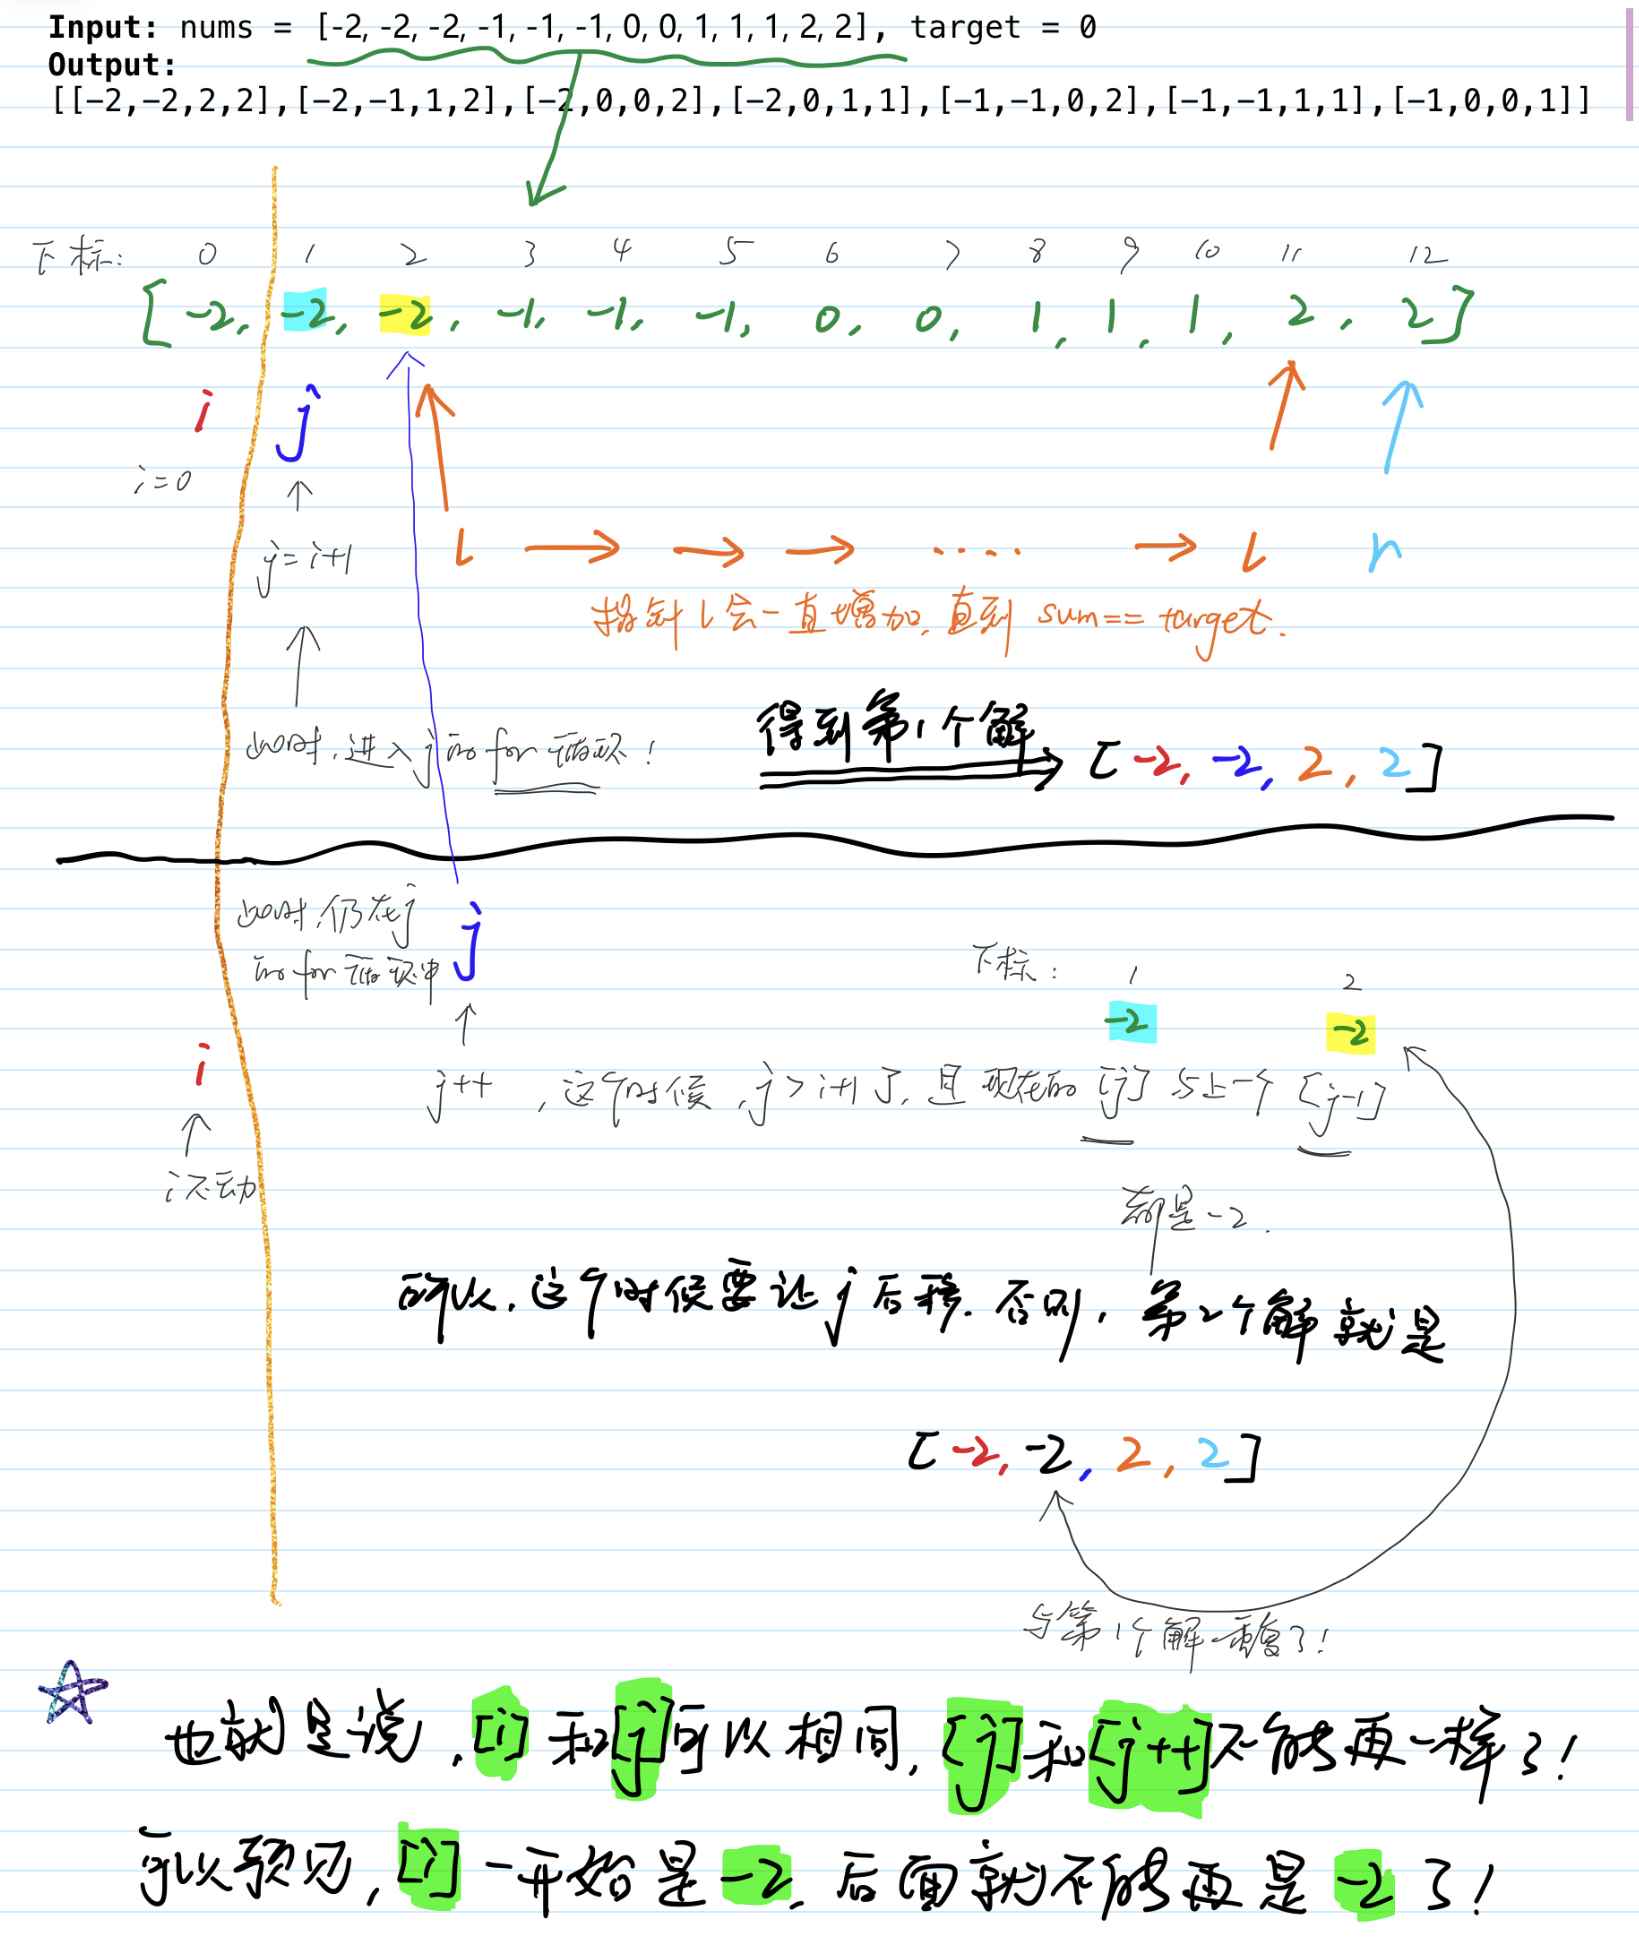 Input: nums = [-2, -2, -2, -1, -1, -1, 0, 0, 1, 1, 1, 2, 2], target = 0
Output:
[[-2,-2,2,2],[-2,-1,1,2],[-2,0,0,2],[-2,0,1,1],[-1,-1,0,2],[-1,-1,1,1],[-1,0,0,1]]
下标: 0 1 2 3 4 5 6 7 8 9 10 11 12
[-2, -2, -2, -1, -1, -1, 0, 0, 1, 1, 1, 2, 2]
i j
i=0
j=i+1
l → → → ····· → l r
指针l会一直增加, 直到 sum == target.
得到第1个解
[-2, -2, 2, 2]
此时, 进入j的for循环!
此时, 仍在j
的for循环中
j
下标: 1 2
-2 -2
i
j++ , 这个时候, j > i+1了, 且现在的[j]与上一个[j-1]
i不动
都是-2.
所以, 这个时候要让j后移. 否则, 第2个解就是
[-2, -2, 2, 2]
与第1个解重复了!
也就是说, [i]和[j]可以相同, [j]和[j++]不能再一样了!
可以预见, [i]一开始是-2, 后面就不能再是-2了!